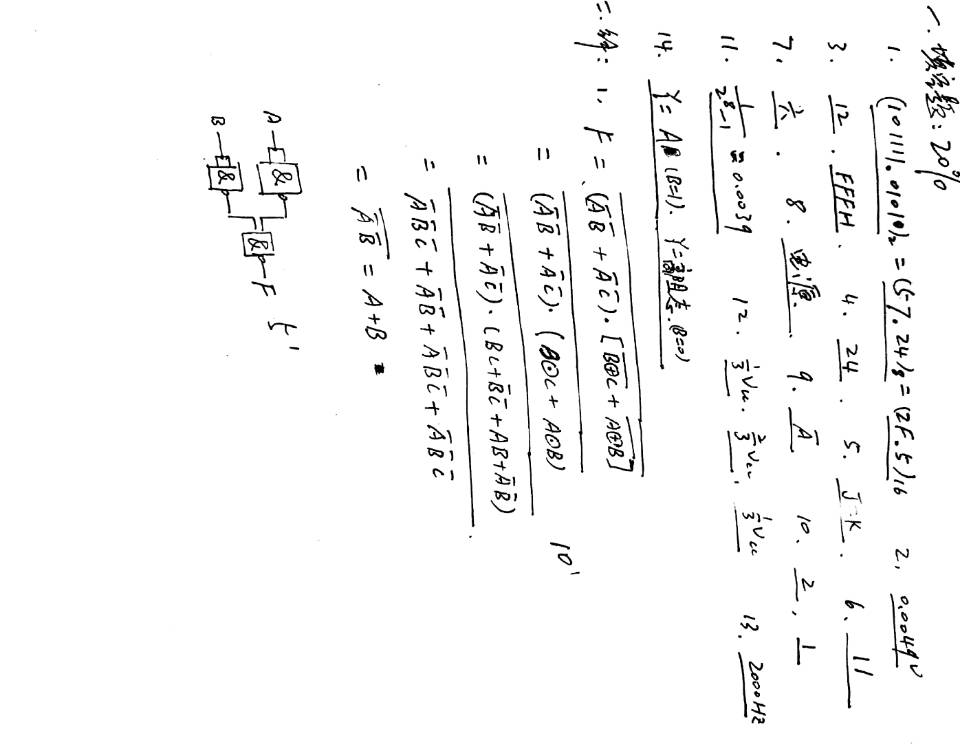 一. 填空题: 20%
1. (101111.01010)₂ = (57.24)₈ = (2F.5)₁₆ 2. 0.0049V
3. 12. FFFH. 4. 24. 5. J=K. 6. 11
7. 六. 8. 电源. 9. A̅ 10. 2, 1
11. 1/(2⁸-1) ≈ 0.0039 12. 1/3 Vcc. 2/3 Vcc, 1/3 Vcc 13. 2000HZ
14. Y = A (B=1). Y=高阻态. (B=0)
二. 1. F = (A̅B̅ + A̅C̅)·[B⊕C + A⊕B]
= (A̅B̅ + A̅C̅)·(B⊙C + A⊙B) 10'
= (A̅B̅ + A̅C̅)·(BC+B̅C̅+AB+A̅B̅)
= A̅B̅C̅ + A̅B̅ + A̅B̅C̅ + A̅B̅C̅
= A̅B̅ = A+B
A & B & & F 5'